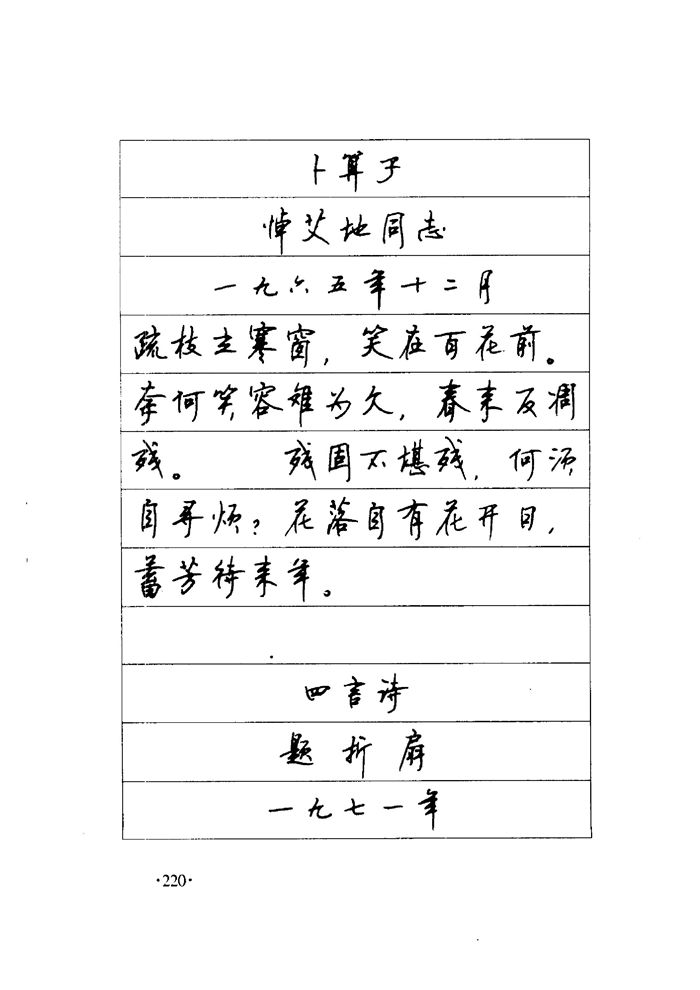 卜算子
悼艾地同志
一九六五年十二月
疏枝立寒窗，笑在百花前。
奈何笑容难为久，春来反凋
残。　　残固不堪残，何须
自寻烦？花落自有花开日，
蓄芳待来年。
四言诗
题折扇
一九七一年
·220·